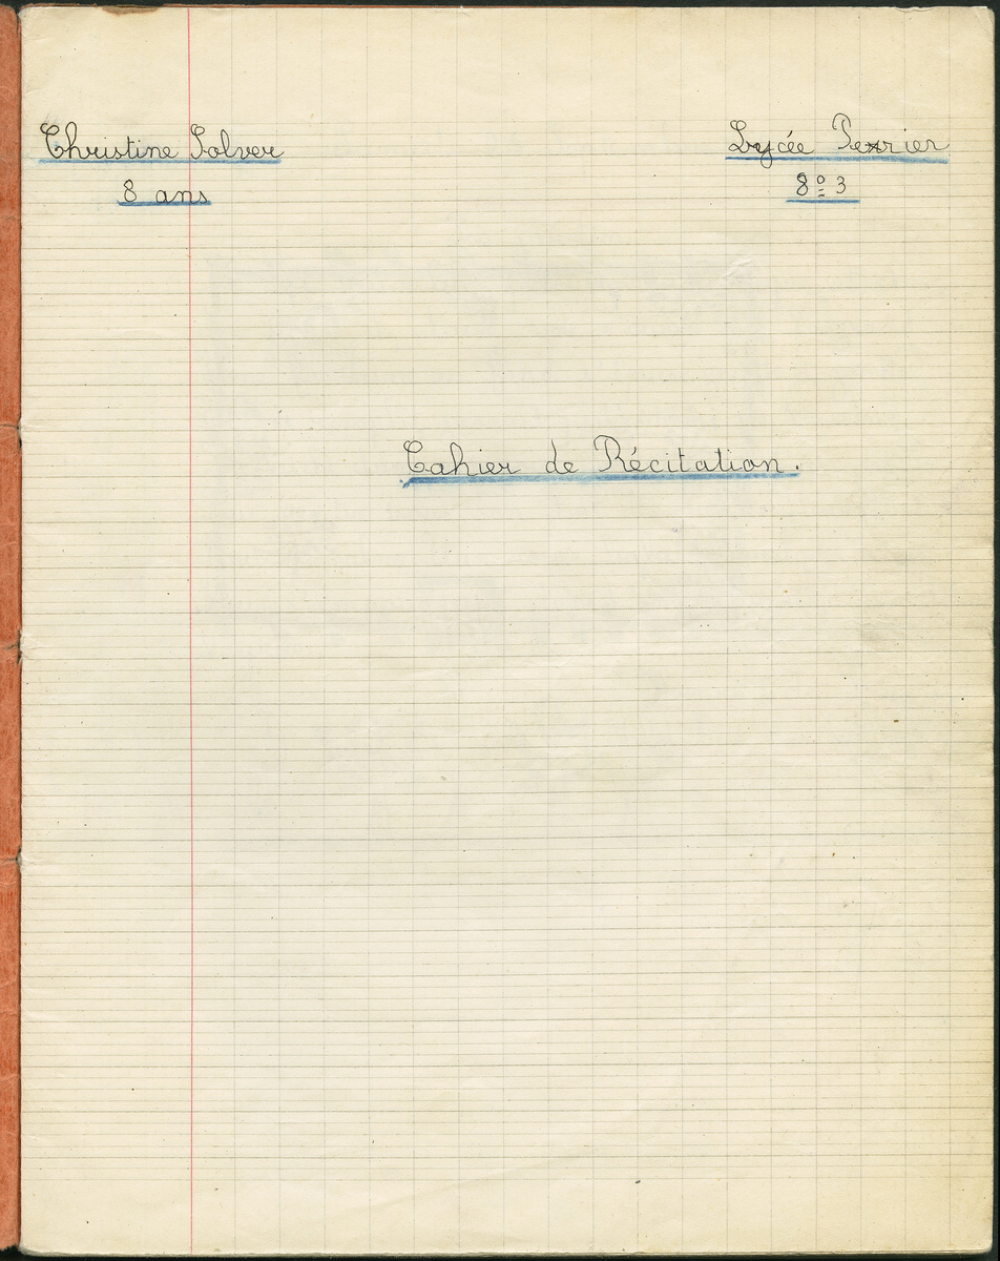 Christine Solver
Lycée Perrier
8 ans
8º 3
Cahier de Récitation.